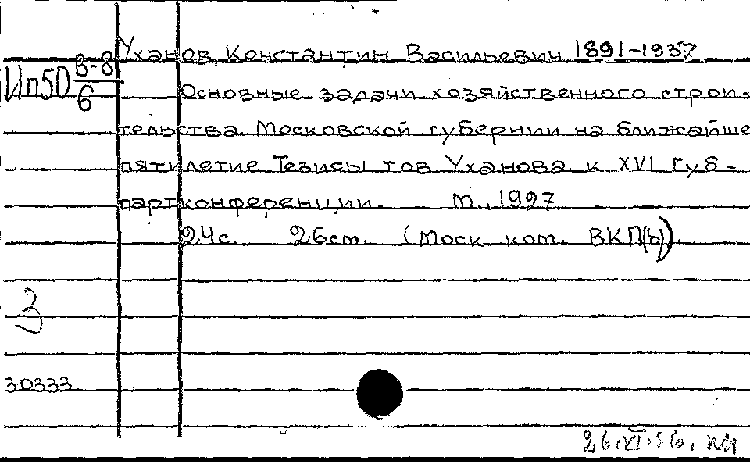 Уханов Константин Васильевич 1891-1937
Ип50 В-8/6
Основные задачи хозяйственного строи-
тельства Московской губернии на ближайше
пятилетие Тезисы тов Уханова к XVI губ-
партконференции. М., 1927
24с. 26см. (Моск ком. ВКП(б))
3
30333
26.XI.56.